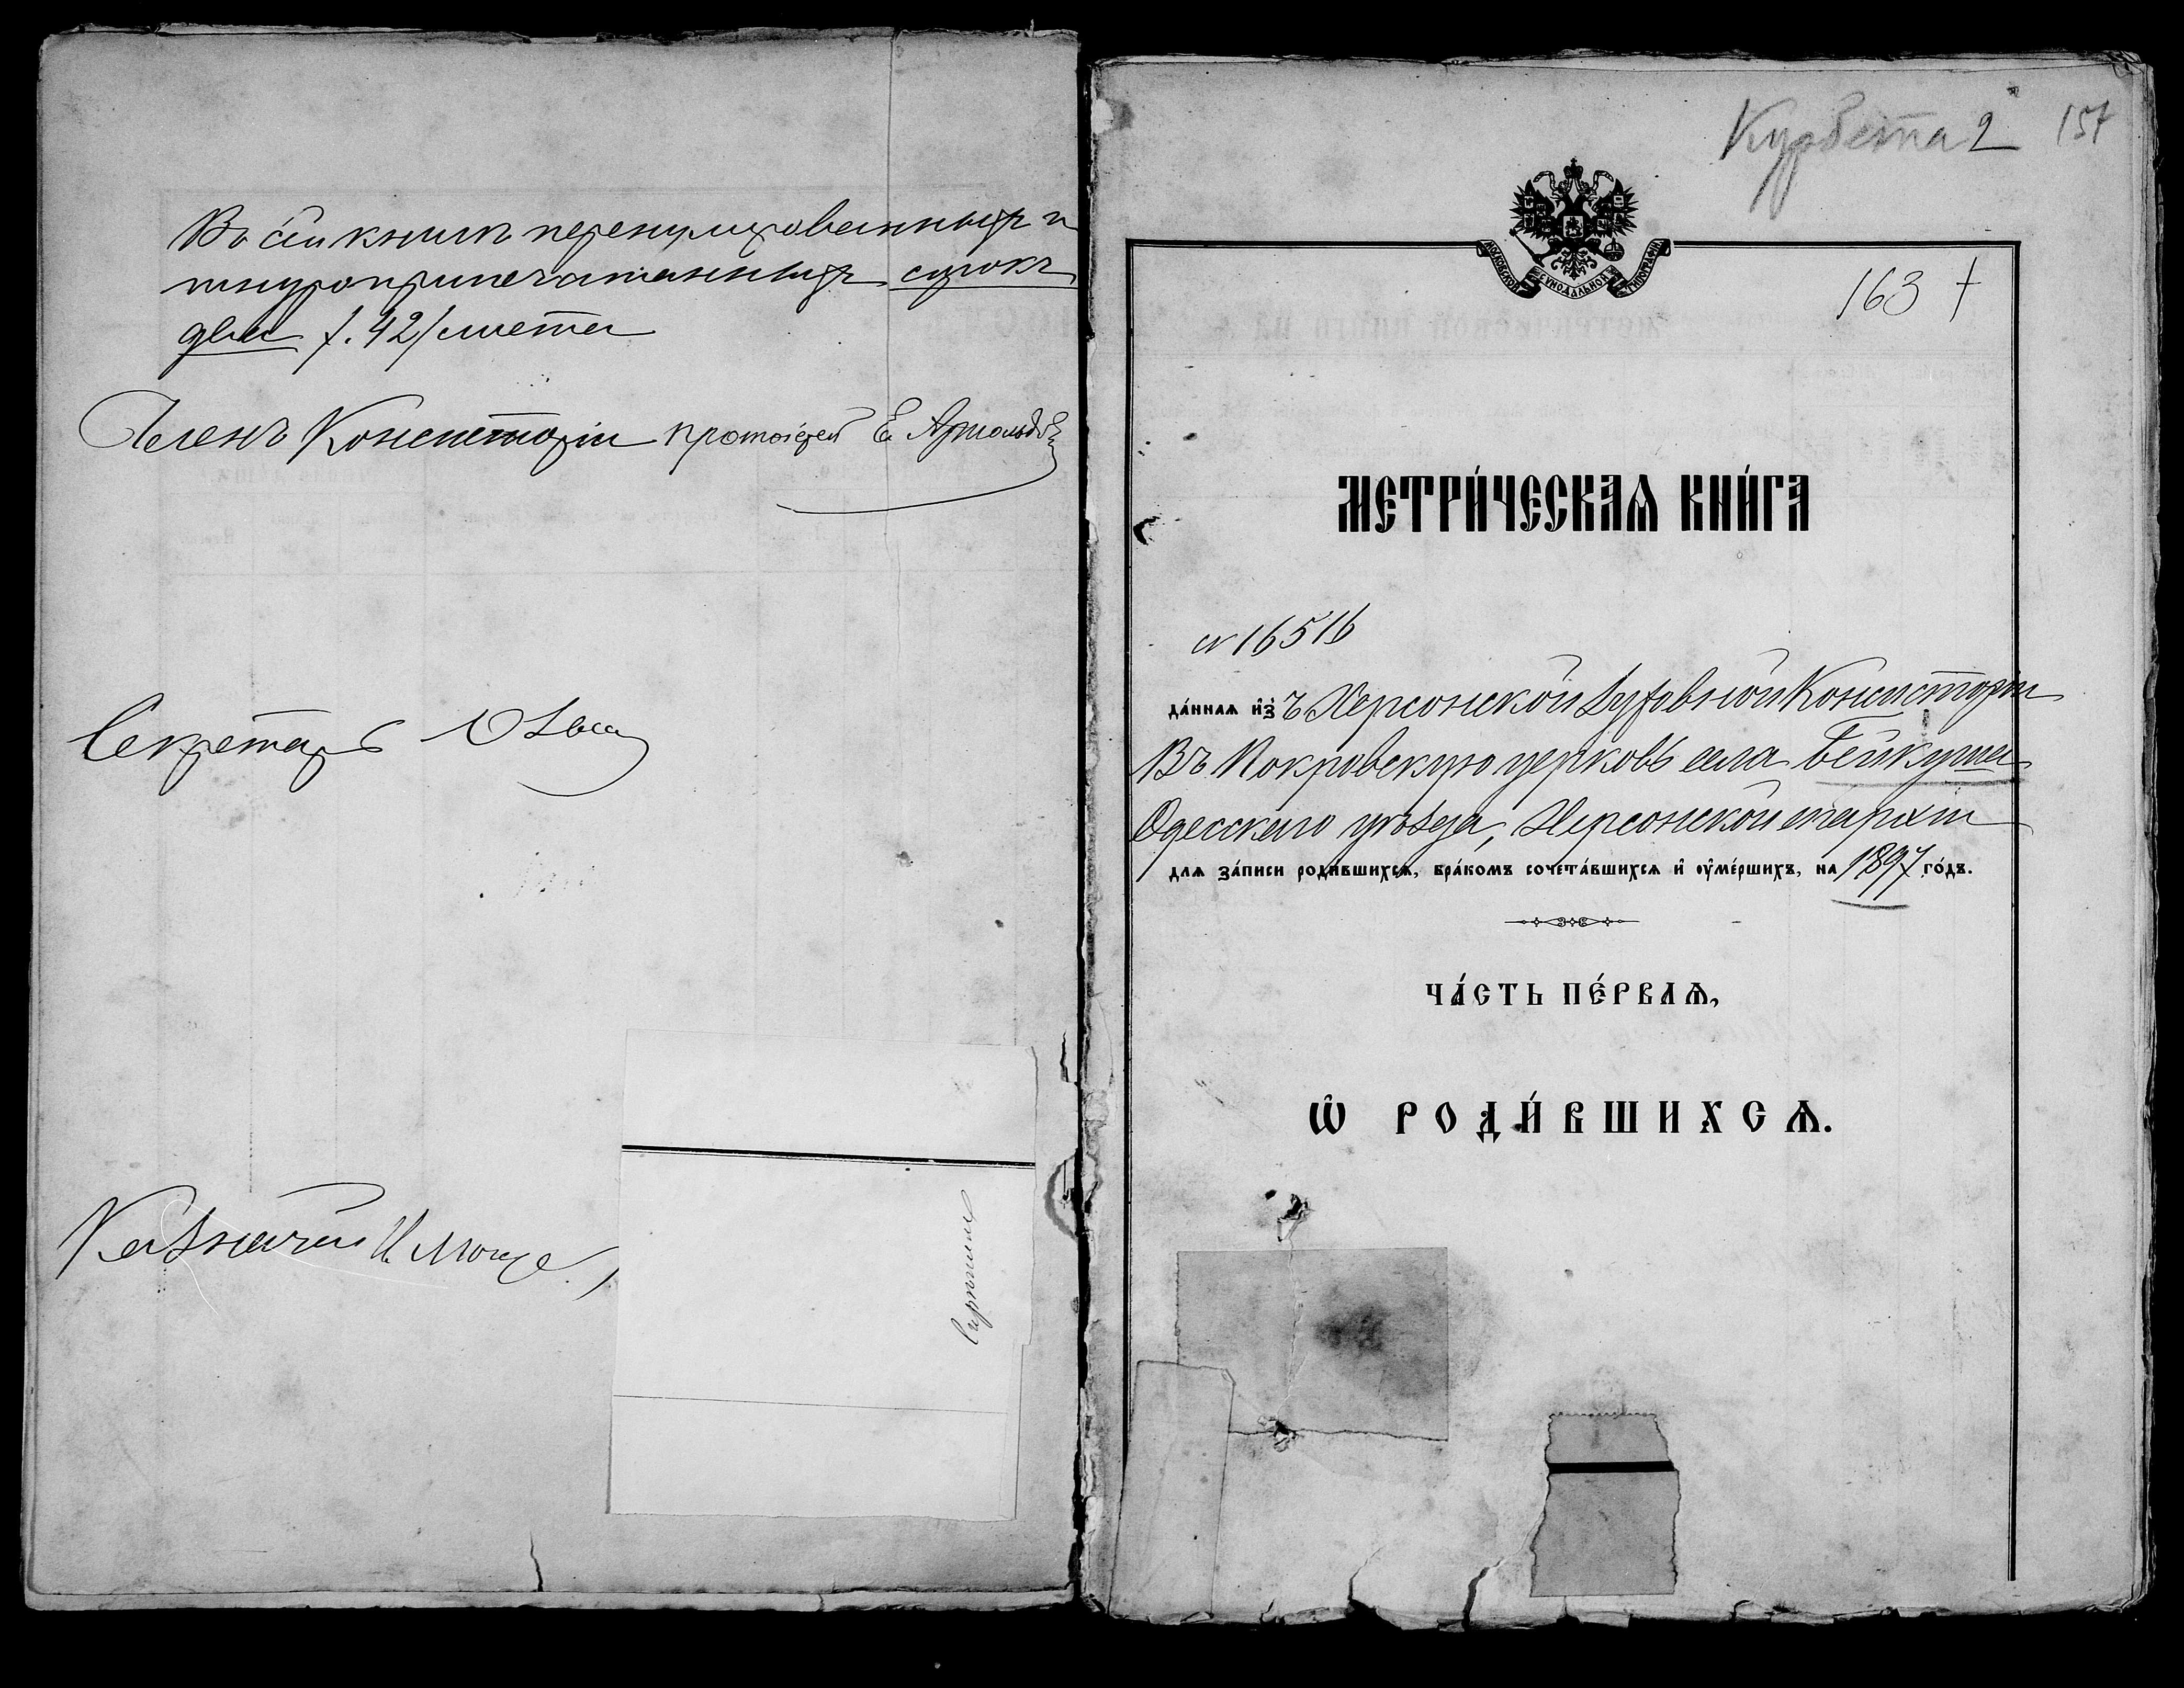 Въ сей книгѣ перенумерованныхъ и
шнуроприпечатанныхъ сорокъ
два /. 42/ листа
Членъ Консисторіи протоіерей Е.
Секретарь
Казначей И.
Сергѣемъ
2 157
МОСКОВСКОЙ СУНОДАЛЬНОЙ ТИПОГРАФІИ
163 +
МЕТРИ́ЧЕСКАѦ КНИ́ГА
№ 16516
да́ннаѧ и҆з̾ъ Херсонской Духовной Консисторіи
Въ Покровскую церковь села Бейкуша
Одесскаго уѣзда, Херсонской епархіи
длѧ за́писи роди́вшихсѧ, бра́комъ сочета́вшихсѧ и҆ ѹ҆ме́ршихъ, на 1897 го́дъ.
ЧА́СТЬ ПЕ́РВАѦ,
Ѡ҆ РОДИ́ВШИХСѦ.